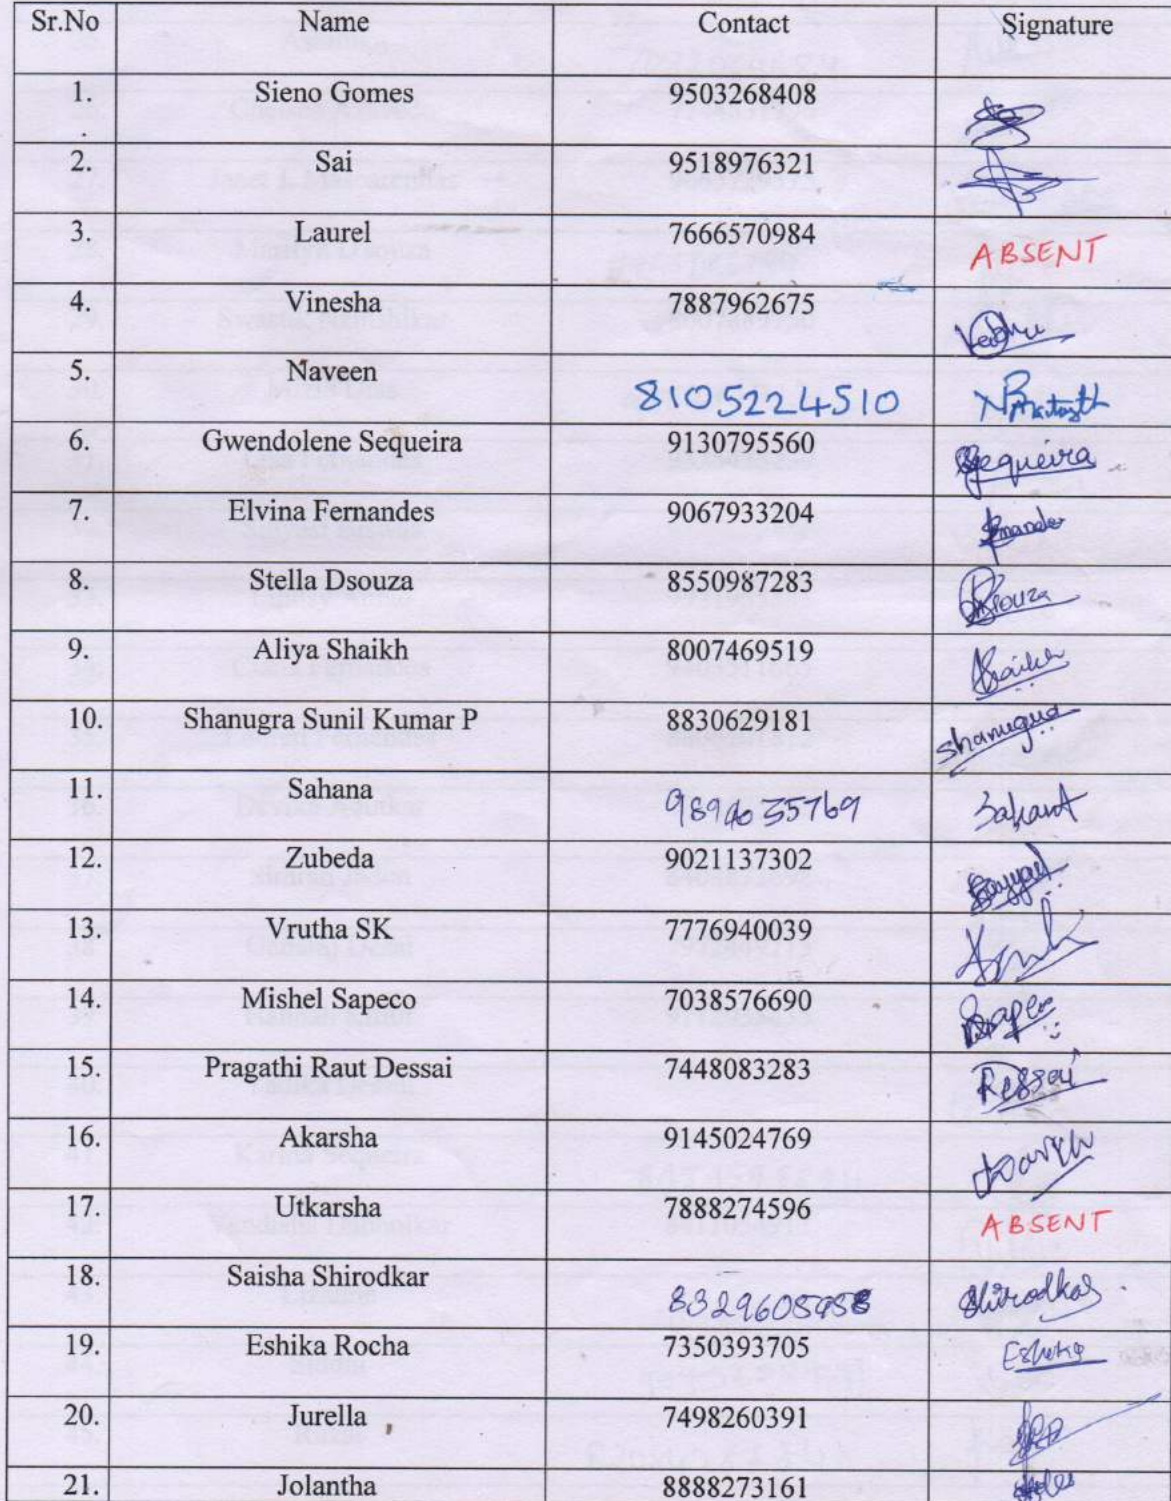 Sr.No Name Contact Signature
1. Sieno Gomes 9503268408
2. Sai 9518976321
3. Laurel 7666570984 ABSENT
4. Vinesha 7887962675
5. Naveen 8105224510
6. Gwendolene Sequeira 9130795560 Sequeira
7. Elvina Fernandes 9067933204
8. Stella Dsouza 8550987283 Dsouza
9. Aliya Shaikh 8007469519 Shaikh
10. Shanugra Sunil Kumar P 8830629181 Shanugra
11. Sahana
12. Zubeda 9021137302 Sayyad
13. Vrutha SK 7776940039
14. Mishel Sapeco 7038576690
15. Pragathi Raut Dessai 7448083283 Dessai
16. Akarsha 9145024769
17. Utkarsha 7888274596 ABSENT
18. Saisha Shirodkar Shirodkar
19. Eshika Rocha 7350393705 Eshika
20. Jurella 7498260391
21. Jolantha 8888273161